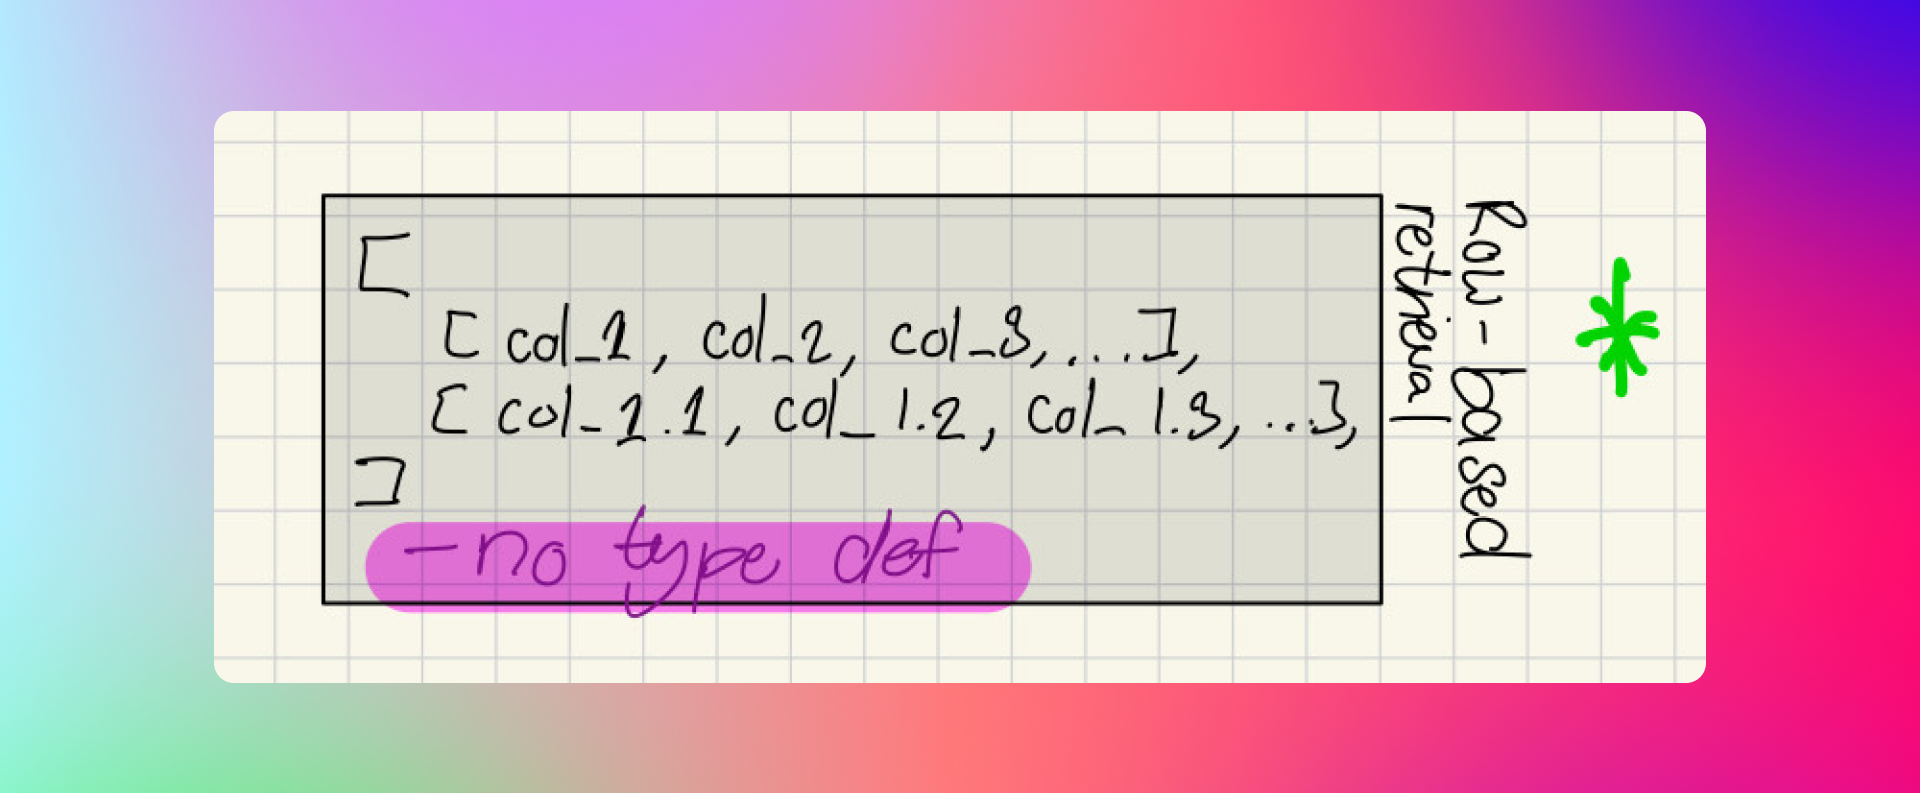 [
[ col_1, col_2, col_3, ...],
[ col_1.1, col_1.2, col_1.3, ...],
]
- no type def
Row-based
retrieval